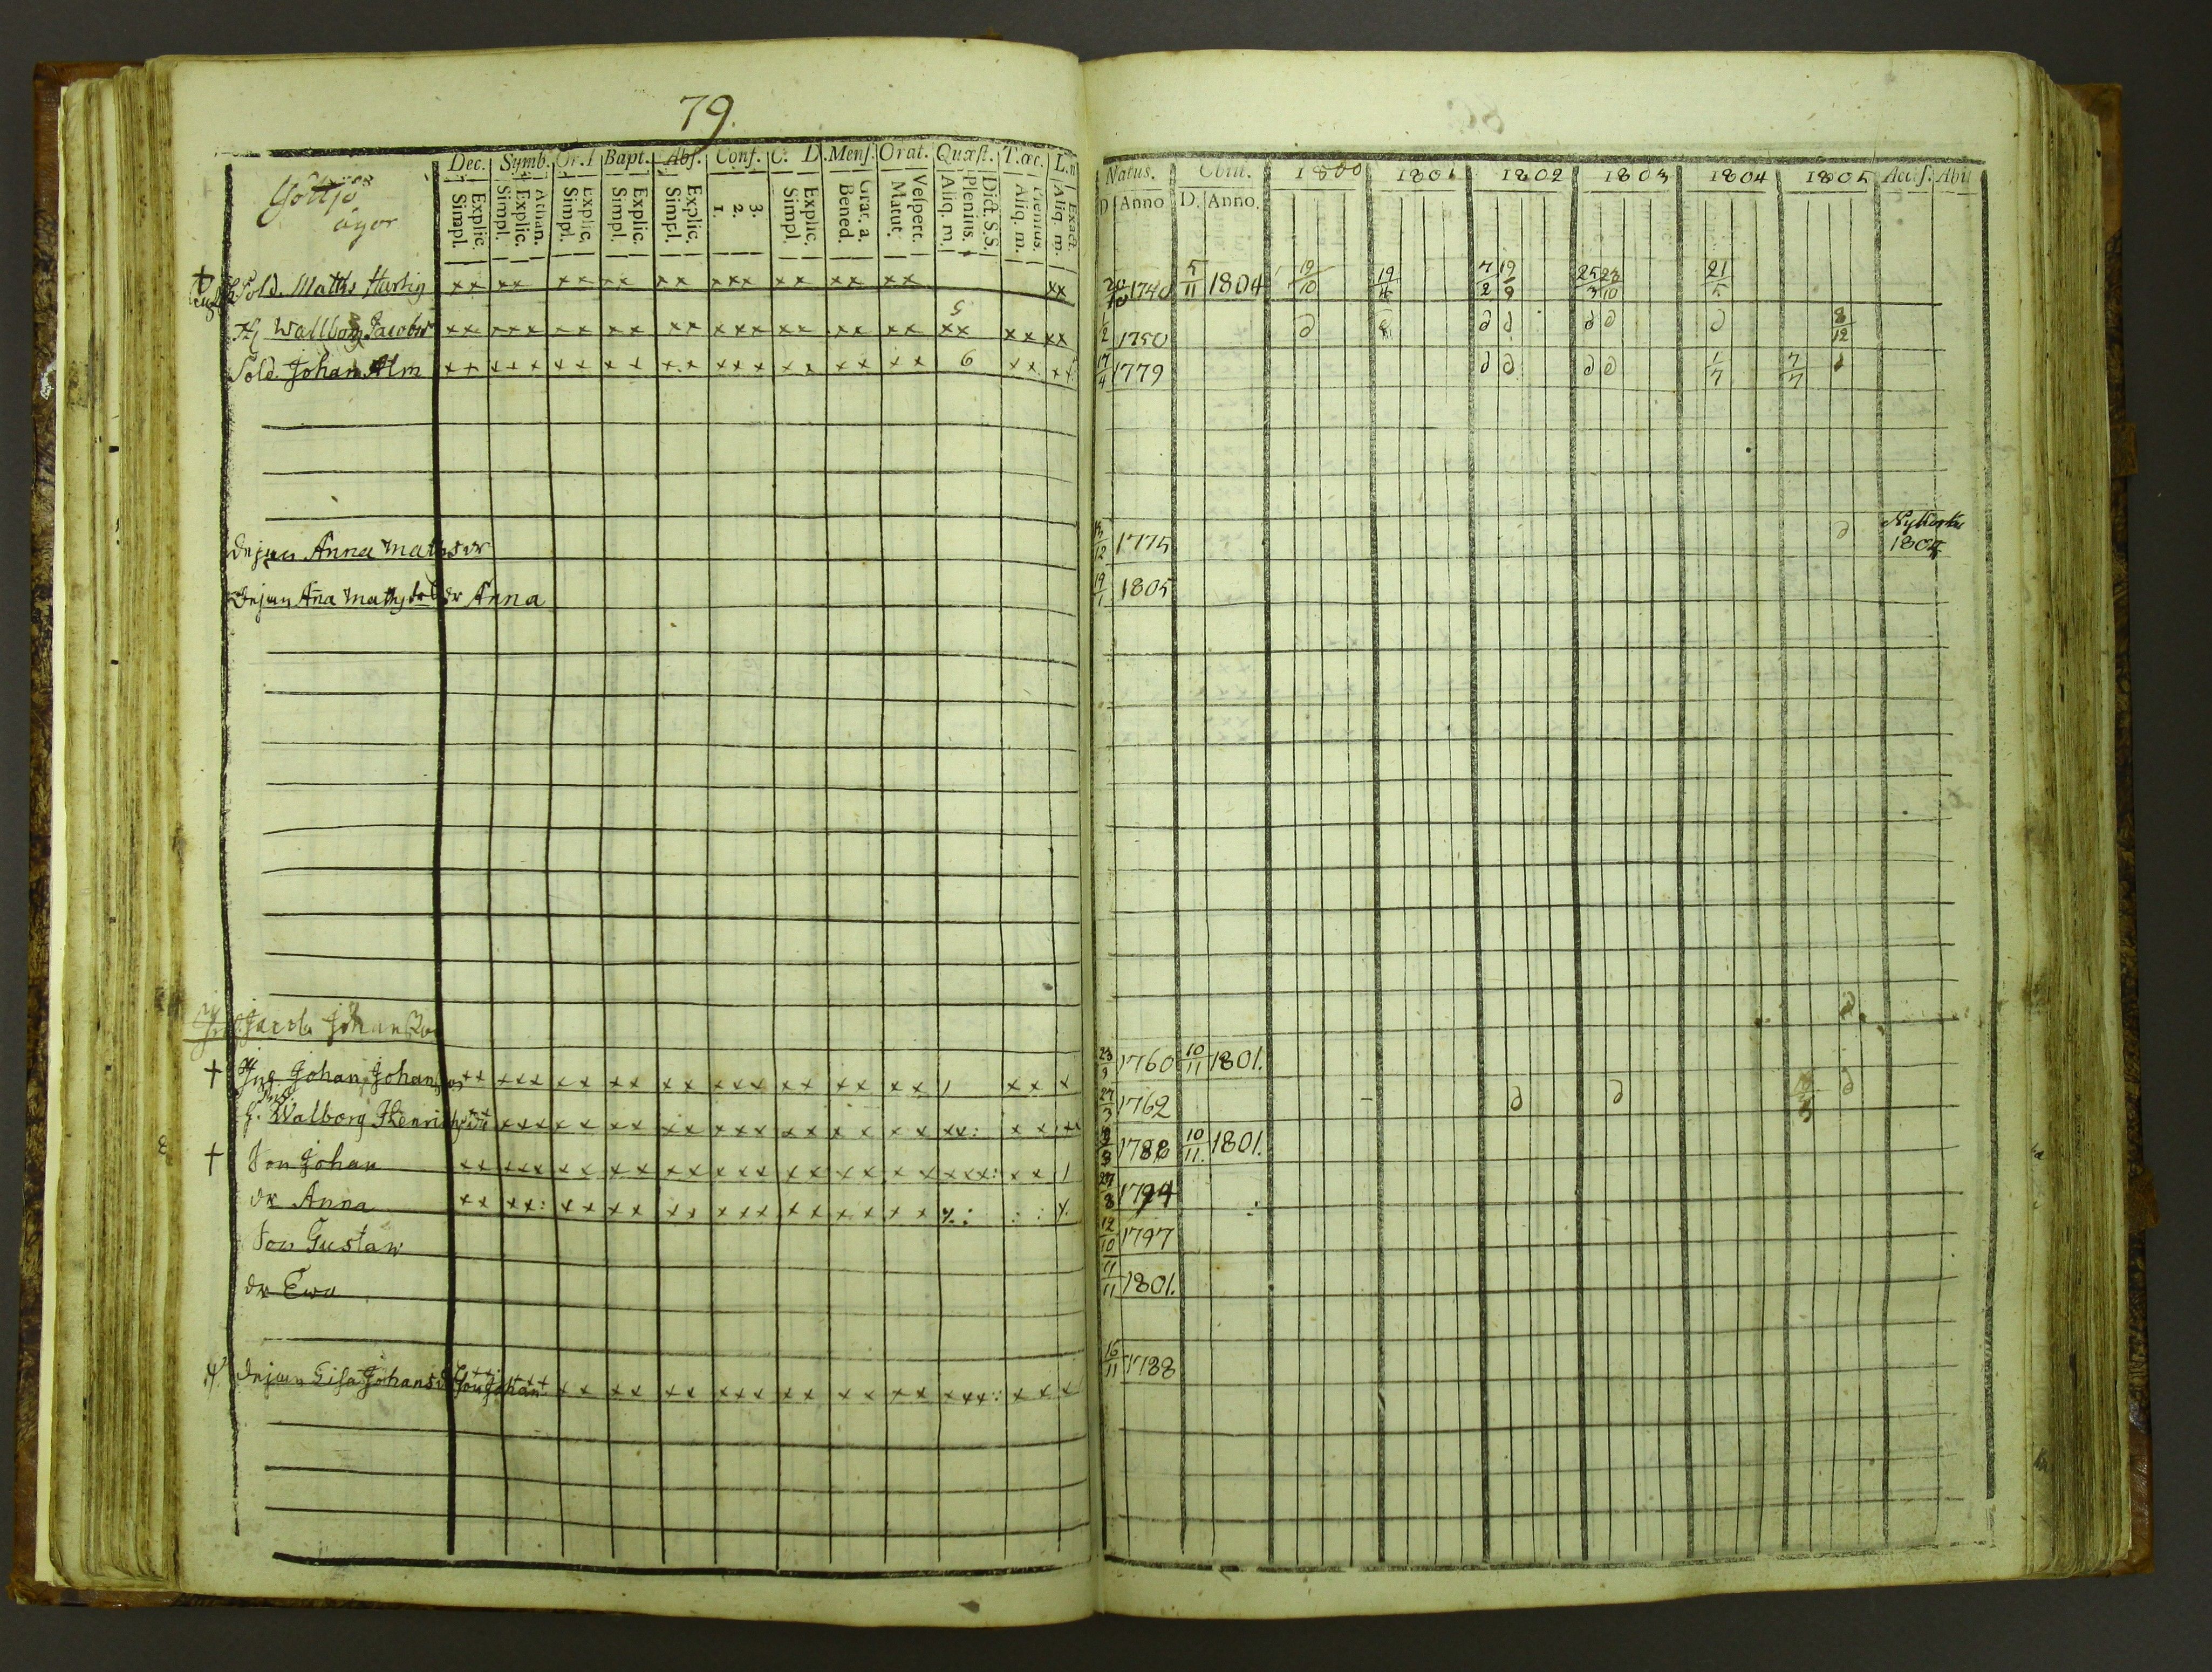 79.
Dec. Symb. Or. I Bapt. Abs. Conf. C. D. Mens. Orat. Quæst. T. œc. L. n
Göttjö
ägor
Explic. Simpl. Athan. Explic. Simpl. Explic. Simpl. Explic. Simpl. Explic. Simpl. 3. 2. 1. Explic. Simpl. Grat. a. Bened. Vespert. Matut. Dict. S.S. Plenius. Aliq. m. Plenius. Aliq. m. Exact. Aliq. m.
Natus. Obiit. 1800 1801 1802 1803 1804 1805 Acc. s. Abii
D Anno D. Anno.
† Sold. Matts Hartig xx xx xx xx xx xxx xx xx xx xx 1740 5/11 1804 19/10 19/4 7/2 19/9 25/3 23/10 21/5
H Wallborg Jacobsdr xx xxx xx xx xx xxx xx xx xx 5 xx xx xx 1/2 1750 8/12
Sold Johan Alm xx xxx xx xx xx xxx xx xx xx 6 xx xx 17/4 1779 1/7 7/7
Anna Mattsdr 13/12 1775
1804
Anna Mattsdr dr Anna 19/1 1805
Jacob Johansson
† Johan Johansson xx xxx xx xx xx xxx xx xx xx 1 xx x 23/9 1760 10/11 1801.
h. Walborg Henrichsdr xxx xx xx xx xxx xx xx xx xx: xx xx 27/3 1762
† Son Johan xx xxx xx xx xx xxx xx xx xx xxx: xx 1 1786 10/11. 1801.
dr Anna xx xx: xx xx xx xxx xx xx xx 27/8 1794
Son Gustav 12/10 1797
dr Ewa 11 1801.
Lisa Johansd Son Johan xx xx xx xxx xx xx xx xxx: xx x 16/11 1788